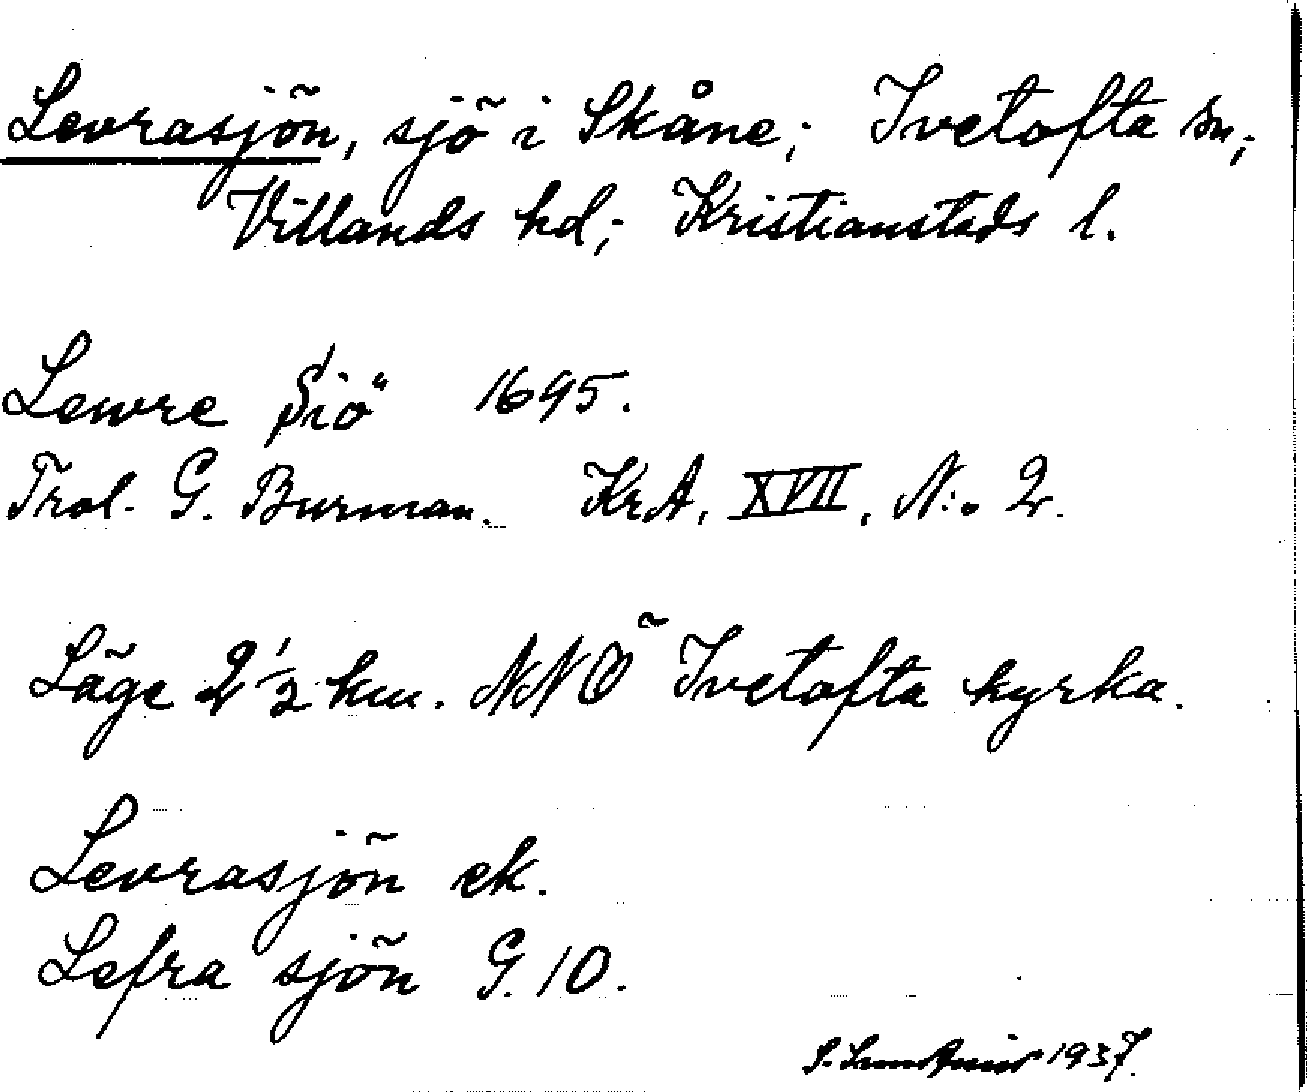 Levrasjön, sjö i Skåne; Ivetofta sn;
Villands hd; Kristianstads l.
Lewre Siö 1695.
Trol. G. Burman. KrA, XVII, N:o 2.
Läge 2 1/2 km. NNÖ Ivetofta kyrka.
Levrasjön ek.
Lefra sjön G. 10.
1937.